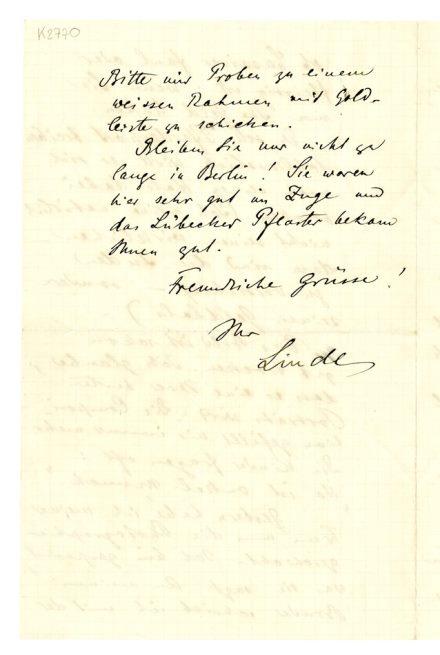 K2770
Bitte mir Proben zu einem
weissen Rahmen mit Gold-
leiste zu schicken.
Bleiben Sie nur nicht zu
lange in Berlin! Sie waren
hier sehr gut im Zuge und
das Lübecker Pflaster bekam
Ihnen gut.
Freundliche Grüsse!
Ihr
Linde